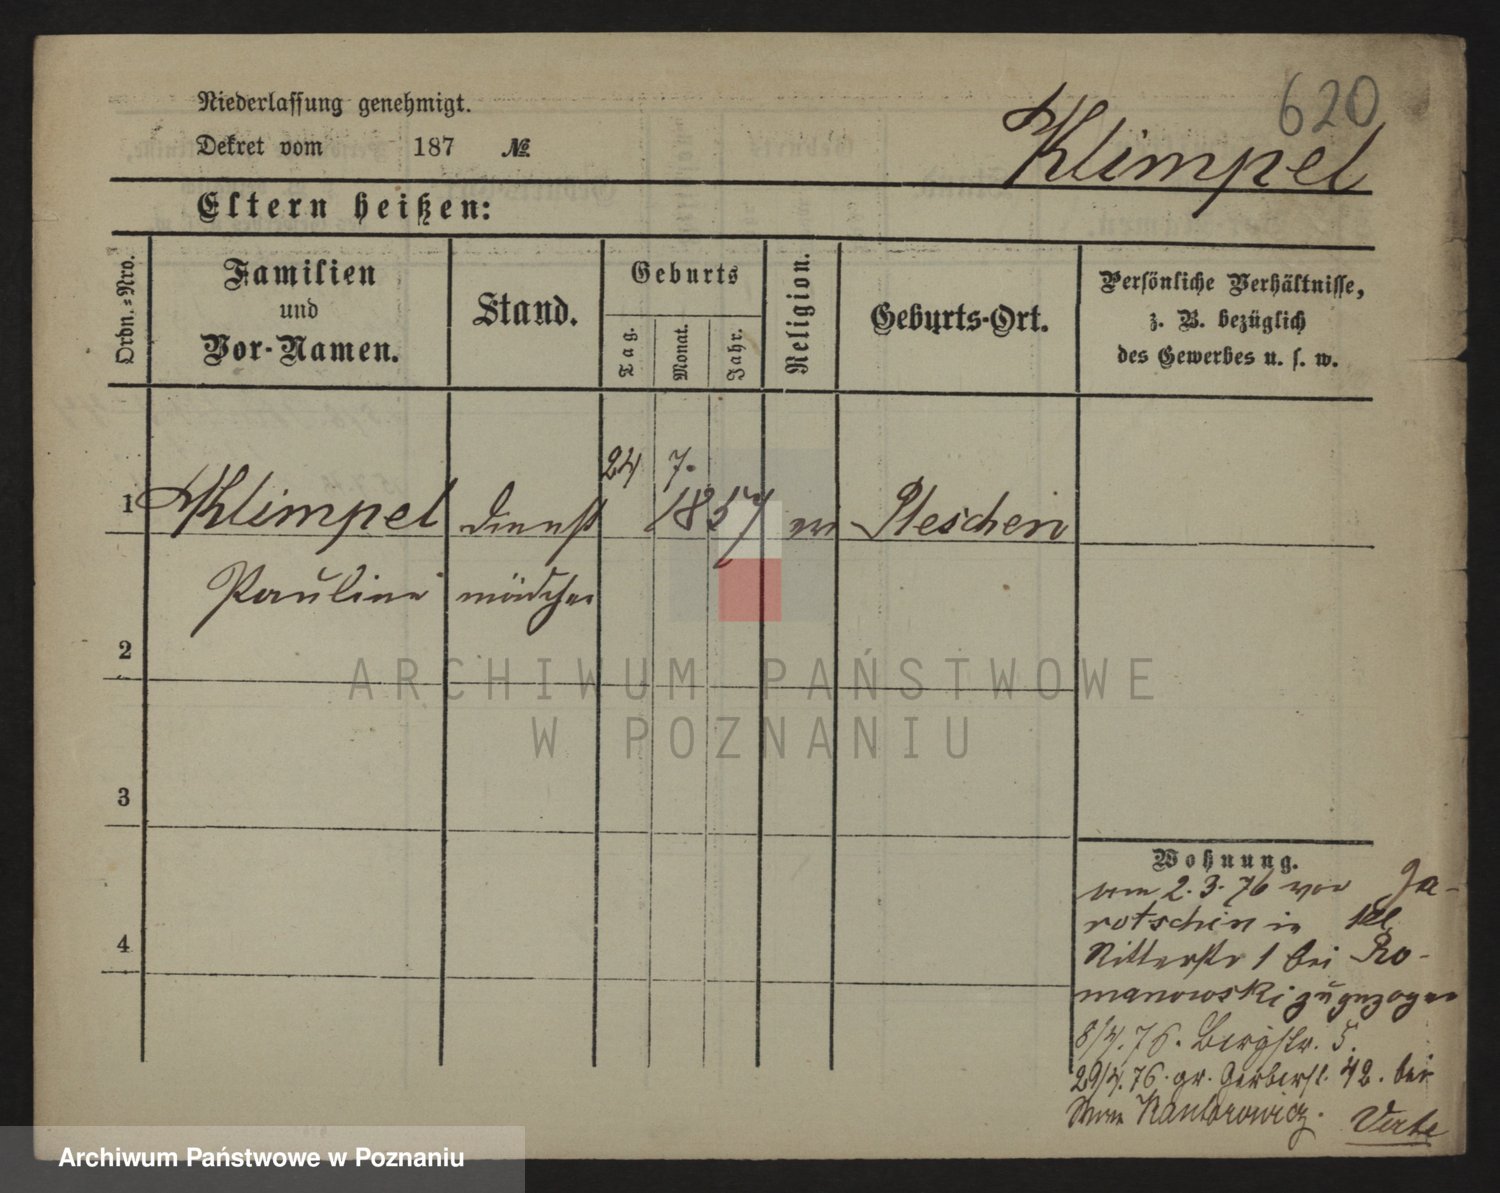 620
Niederlassung genehmigt.
Dekret vom 187 №
Klimpel
Eltern heißen:
Ordn.=Nro.
Familien
und
Vor-Namen.
Stand.
Geburts
Tag.
Monat.
Jahr.
Religion.
Geburts-Ort.
Persönliche Verhältnisse,
z. B. bezüglich
des Gewerbes u. s. w.
24 7.
1 Klimpel Dienst 1857 ev Pleschen
Pauline mädchen
2
3
4
Wohnung.
vom 2.3.76 von Ja-
rotschin in kl
Ritterstr 1 bei Ro-
manowski zugezogen
8/4.76. Bergstr. 5.
29/4.76. gr. Gerberst. 42. bei
Kantorowicz. Verte
ARCHIWUM PAŃSTWOWE
W POZNANIU
Archiwum Państwowe w Poznaniu